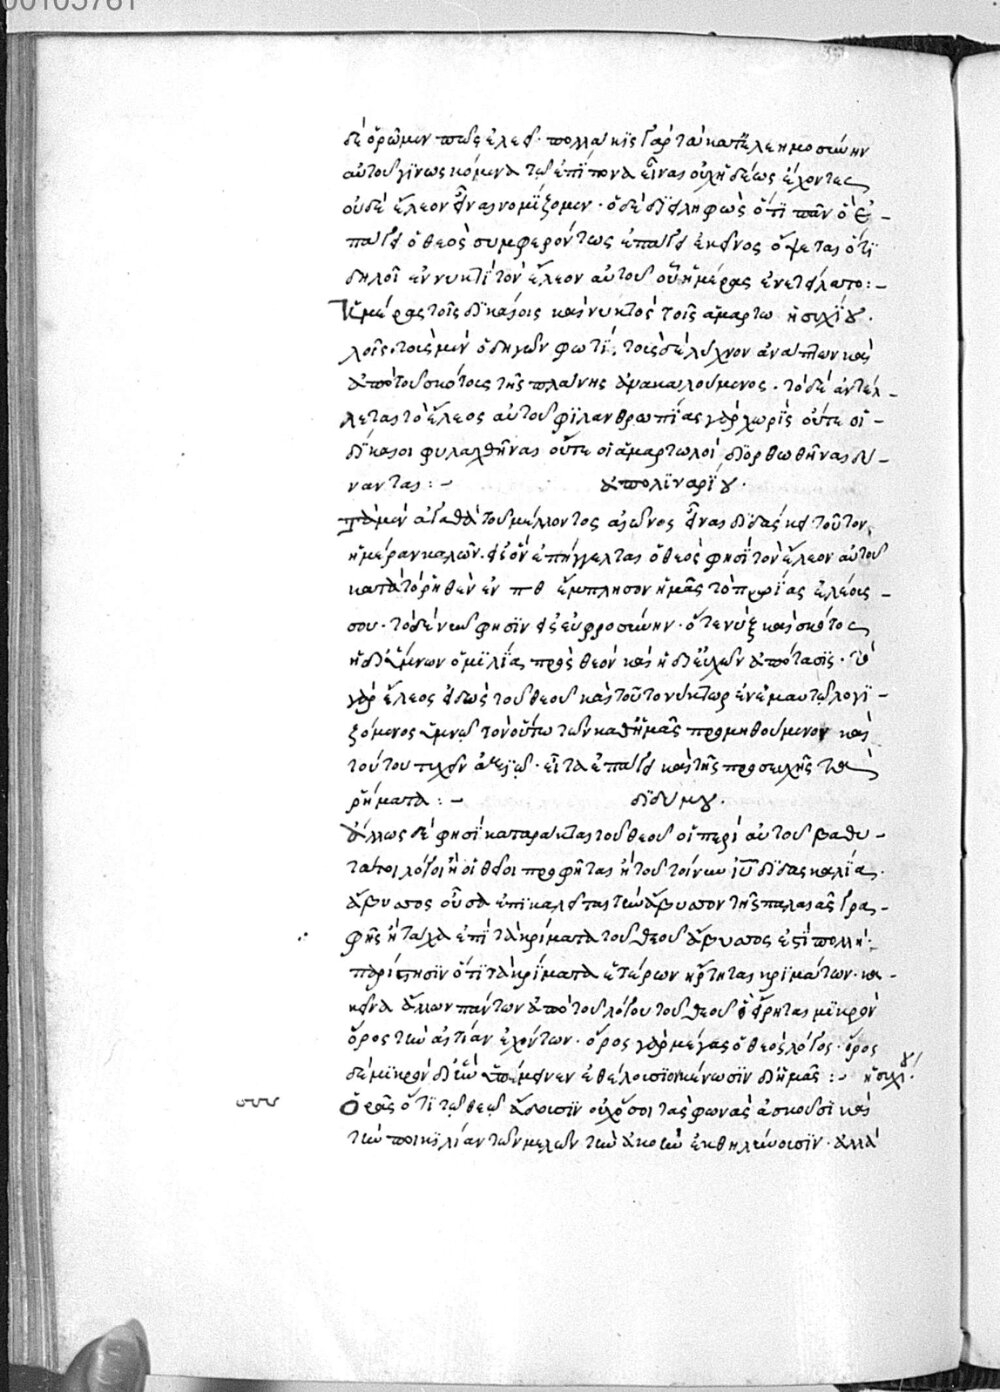 δὲ ὁρῶμεν πῶς ἐλεεῖ· πολλάκις γὰρ τὰ κατ' ἐλεημοσύνην
αὐτοῦ γινωσκόμενα τῷ ἐπίπονα εἶναι οὐχ ἡδέως ἔχοντες
οὐδὲ ἔλεον εἶναι νομίζομεν· ὁ δὲ διειληφὼς ὅτι πᾶν ὃ ἐ-
πάγει ὁ θεὸς συμφερόντως ἐπάγει ἐκεῖνος ὄψεται ὅτι
δηλοῖ ἐν νυκτὶ τὸν ἔλεον αὐτοῦ οὗ ἡμέρας ἐνετείλατο:-
Ἡμέρας τοῖς δικαίοις καὶ νυκτὸς τοῖς ἁμαρτω ἡσυχίου.
λοῖς· τοῖς μὲν ὁδηγῶν φωτί, τοῖς δὲ λύχνον ἀνάπτων καὶ
ἀπὸ τοῦ σκότους τῆς πλάνης ἀνακαλούμενος· τὸ δὲ ἀντέλ-
λεται τὸ ἔλεος αὐτοῦ φιλανθρωπίας γὰρ χωρὶς οὔτε οἱ
δίκαιοι φυλαχθῆναι οὔτε οἱ ἁμαρτωλοὶ διορθωθῆναι δύ-
νανται:- ἀπολιναρίου.
τὰ μὲν ἀγαθὰ τοῦ μέλλοντος αἰῶνος εἶναι διδάσκει τοῦτον
ἡμέραν καλῶν· εἰς ὃν ἐπήγγελται ὁ θεὸς φησὶ τὸν ἔλεον αὐτοῦ
κατὰ τὸ ῥηθὲν ἐν πθ ἔμπλησον ἡμᾶς τὸ πρωΐας ἐλέους
σου· τὸ δὲ νῦν φησὶν εἰς εὐφροσύνην· ὅτε νὺξ καὶ σκότος
ἡ δι' ὕμνων ὁμιλία πρὸς θεὸν καὶ ἡ δι' εὐχῶν ἀπότασις· τὸ
γὰρ ἔλεος εἰδὼς τοῦ θεοῦ καὶ τοῦτο νύκτωρ ἐν ἐμαυτῷ λογι-
ζόμενος ὑμνῶ τὸν οὕτω τῶν καθ' ἡμᾶς προμηθούμενον καὶ
τούτου τυχεῖν ἀξιῶ· εἶτα ἐπάγει καὶ τῆς προσευχῆς τὰ
ῥήματα:- διδύμου.
ἄλλως δέ φησι καταράκται τοῦ θεοῦ οἱ περὶ αὐτοῦ βαθύ-
τατοι λόγοι ἢ οἱ θεῖοι προφῆται ἡ τοῦ τοίνυν ιυ διδασκαλία
ἄβυσσος οὖσα ἐπικαλεῖται τὴν ἄβυσσον τῆς παλαιᾶς γρα-
φῆς ἢ τάχα ἐπὶ τὰ κρίματα τοῦ θεοῦ ἄβυσσος ἐστὶ πολλὴ·
παρίστησιν ὅτι τὰ κρίματα ἑτέρων ἤρτηται κριμάτων· κα
κεῖνα ἄλλων πάντων ἀπὸ τοῦ λόγου τοῦ θεοῦ εἴρηται μικρὸν
ὄρος τῶν αἰτίαν ἐχόντων· ὄρος γὰρ μέγας ὁ θεὸς λόγος· ὄρος
δὲ μικρὸν δι' ἣν ὑπέμεινεν ἐθελούσιον κένωσιν δι' ἡμᾶς:- ἡσυχίου.
Ὁρᾶς ὅτι τῷ θεῷ ᾄδουσιν οὐχ ὅσοι τὰς φωνὰς ἀσκοῦσι καὶ
τὴν ποικιλίαν τῶν μελῶν τὴν ἀκοὴν ἐκθηλύνουσιν· ἀλλὰ